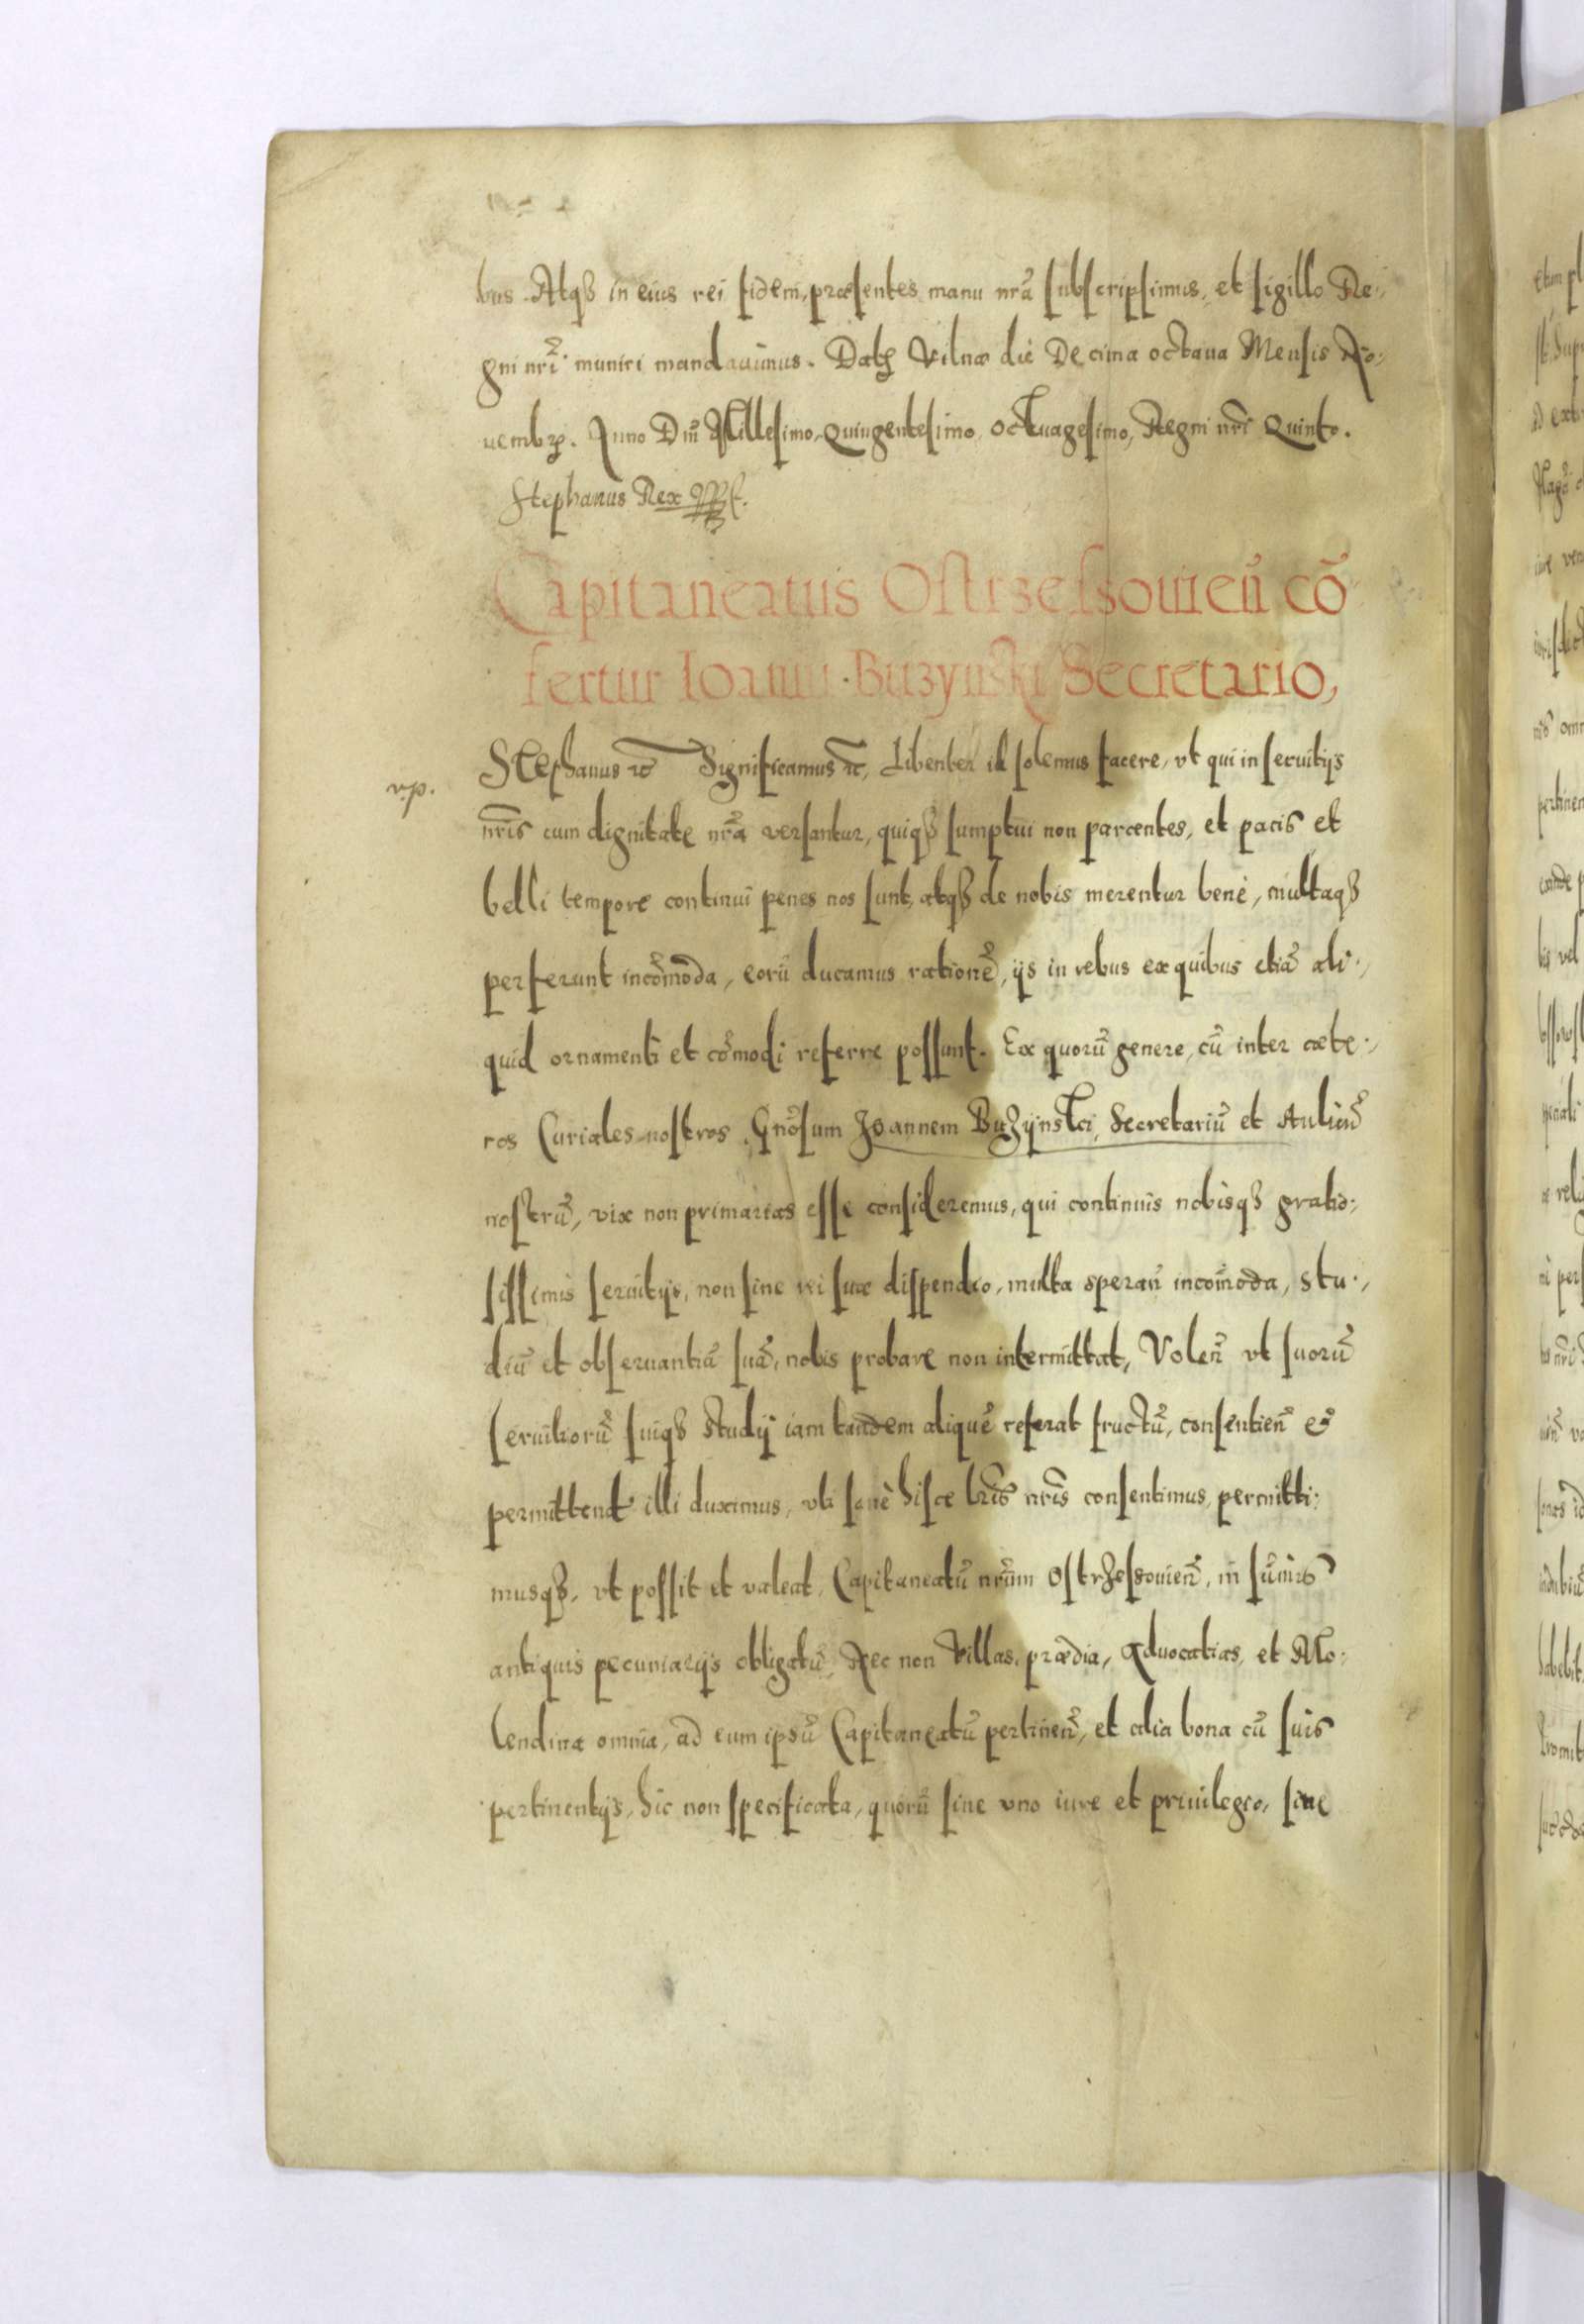 bus. Atq3 in eius rei fidem, præsentes manu nr̃a subscripsimus, et sigillo Re-
gni nr̃i muniri mandauimus. Dat3 Vilnæ die Decima octaua Mensis No-
uembꝝ. Anno Dnĩ Millesimo, Quingentesimo, Octuagesimo, Regni nr̃i Quinto.
Stephanus Rex
Capitaneatus Ostrzessouien̄ cõ-
fertur Ioanni Buzynski Secretario,
v.p.
Stephanus ꝛc̃ Significamus ꝛc̃, Libenter id solemus facere, vt qui in seruitijs
nr̃is cum dignitate nr̃a versantur, quiq3 sumptui non parcentes, et pacis et
belli tempore continui penes nos sunt, atq3 de nobis merentur benè, multaq3
perferunt incõmoda, eorũ ducamus rationẽ, ijs in rebus ex quibus etiã ali-
quid ornamenti et cõmodi referre possunt. Ex quorũ genere, cũ inter cæte-
ros Curiales nostros Gnõsum Joannem Buzÿnski, Secretariũ et Aulicũ
nostrũ, vix non primarias esse consideremus, qui continuis nobisq3 gratio-
sissimis seruitijs, non sine rei suæ dispendio, multa sperañ incom̃oda, stu-
diũ et obseruantiã suã, nobis probare non intermittat, Voleñ vt suorũ
seruitiorũ suiq3 studÿ iam tandem aliquẽ referat fructũ, consentieñ et
permittend illi duximus, vti sanè hisce lr̃is nr̃is consentimus, permitti-
musq3, vt possit et valeat, Capitaneatũ nr̃um Ostrzessouieñ, in sum̃is
antiquis pecuniarijs obligatũ, Nec non Villas, prædia, Aduocatias, et Mo-
lendina omnia, ad eum ipsũ Capitaneatũ pertineñ, et alia bona cũ suis
pertinentijs, hic non specificata, quorũ siue vno iure et priuilegio, siue